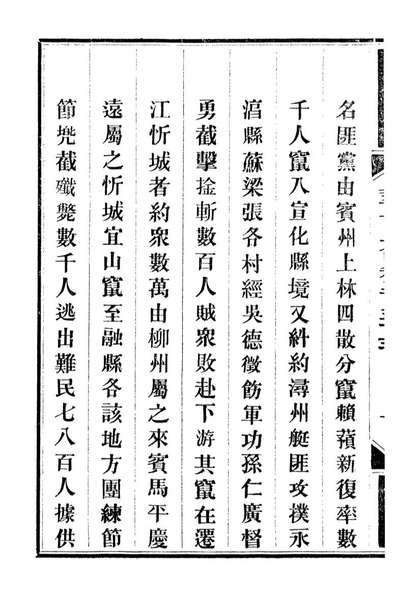 名匪黨由賓州上林四散分竄賴蘋新復率數
千人竄入宣化縣境又糾約潯州艇匪攻撲永
淯縣蘇梁張各村經吳德徵飭軍功孫仁廣督
勇截擊捦斬數百人賊衆敗赴下游其竄在遷
江忻城者約衆數萬由柳州屬之來賓馬平慶
遠屬之忻城宜山竄至融縣各該地方團練節
節兜截殲斃數千人逃出難民七八百人據供